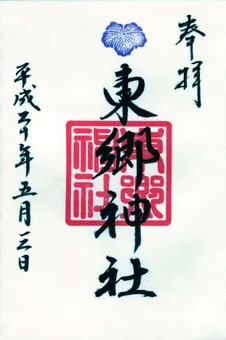 奉拝
東郷神社
東郷
神社
平成二十年五月三日